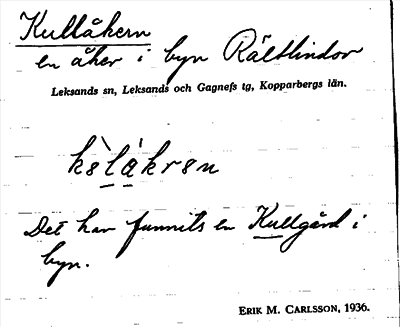 Kullåkern
en åker i byn Rältlindor
Leksands sn, Leksands och Gagnefs tg, Kopparbergs län.
kèlàkrsn
Det har funnits en Kullgård i
byn.
ERIK M. CARLSSON, 1936.